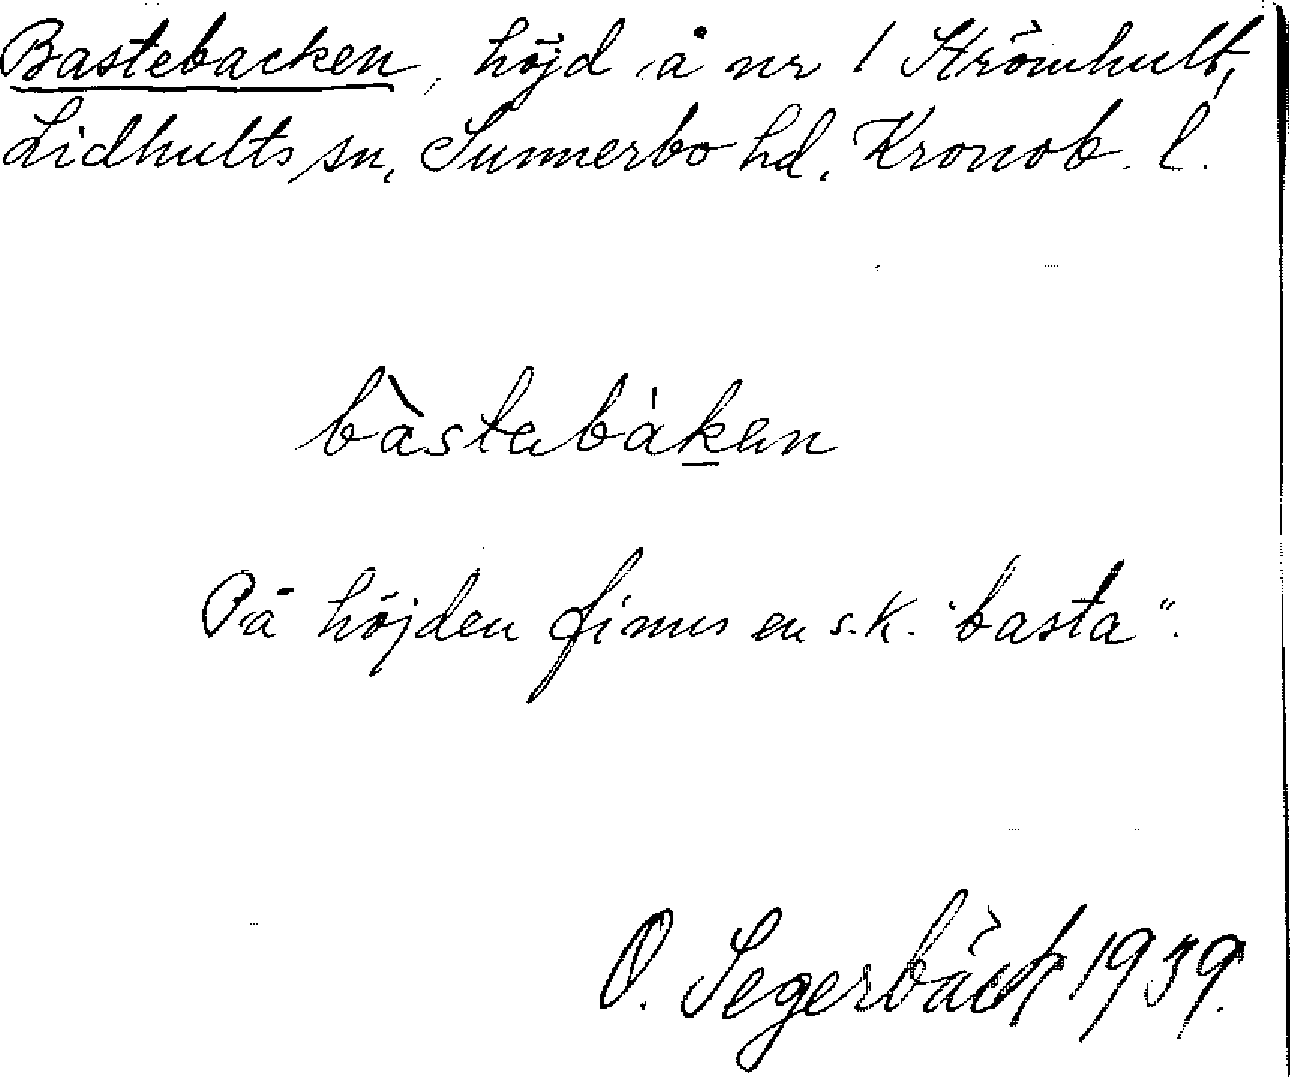 Bastebacken, höjd å nr 1 Strömhult,
Lidhults sn, Sunnerbo hd, Kronob. l.
bàstabáken
På höjden finns en s.k. "basta".
O. Segerbäck 1939.